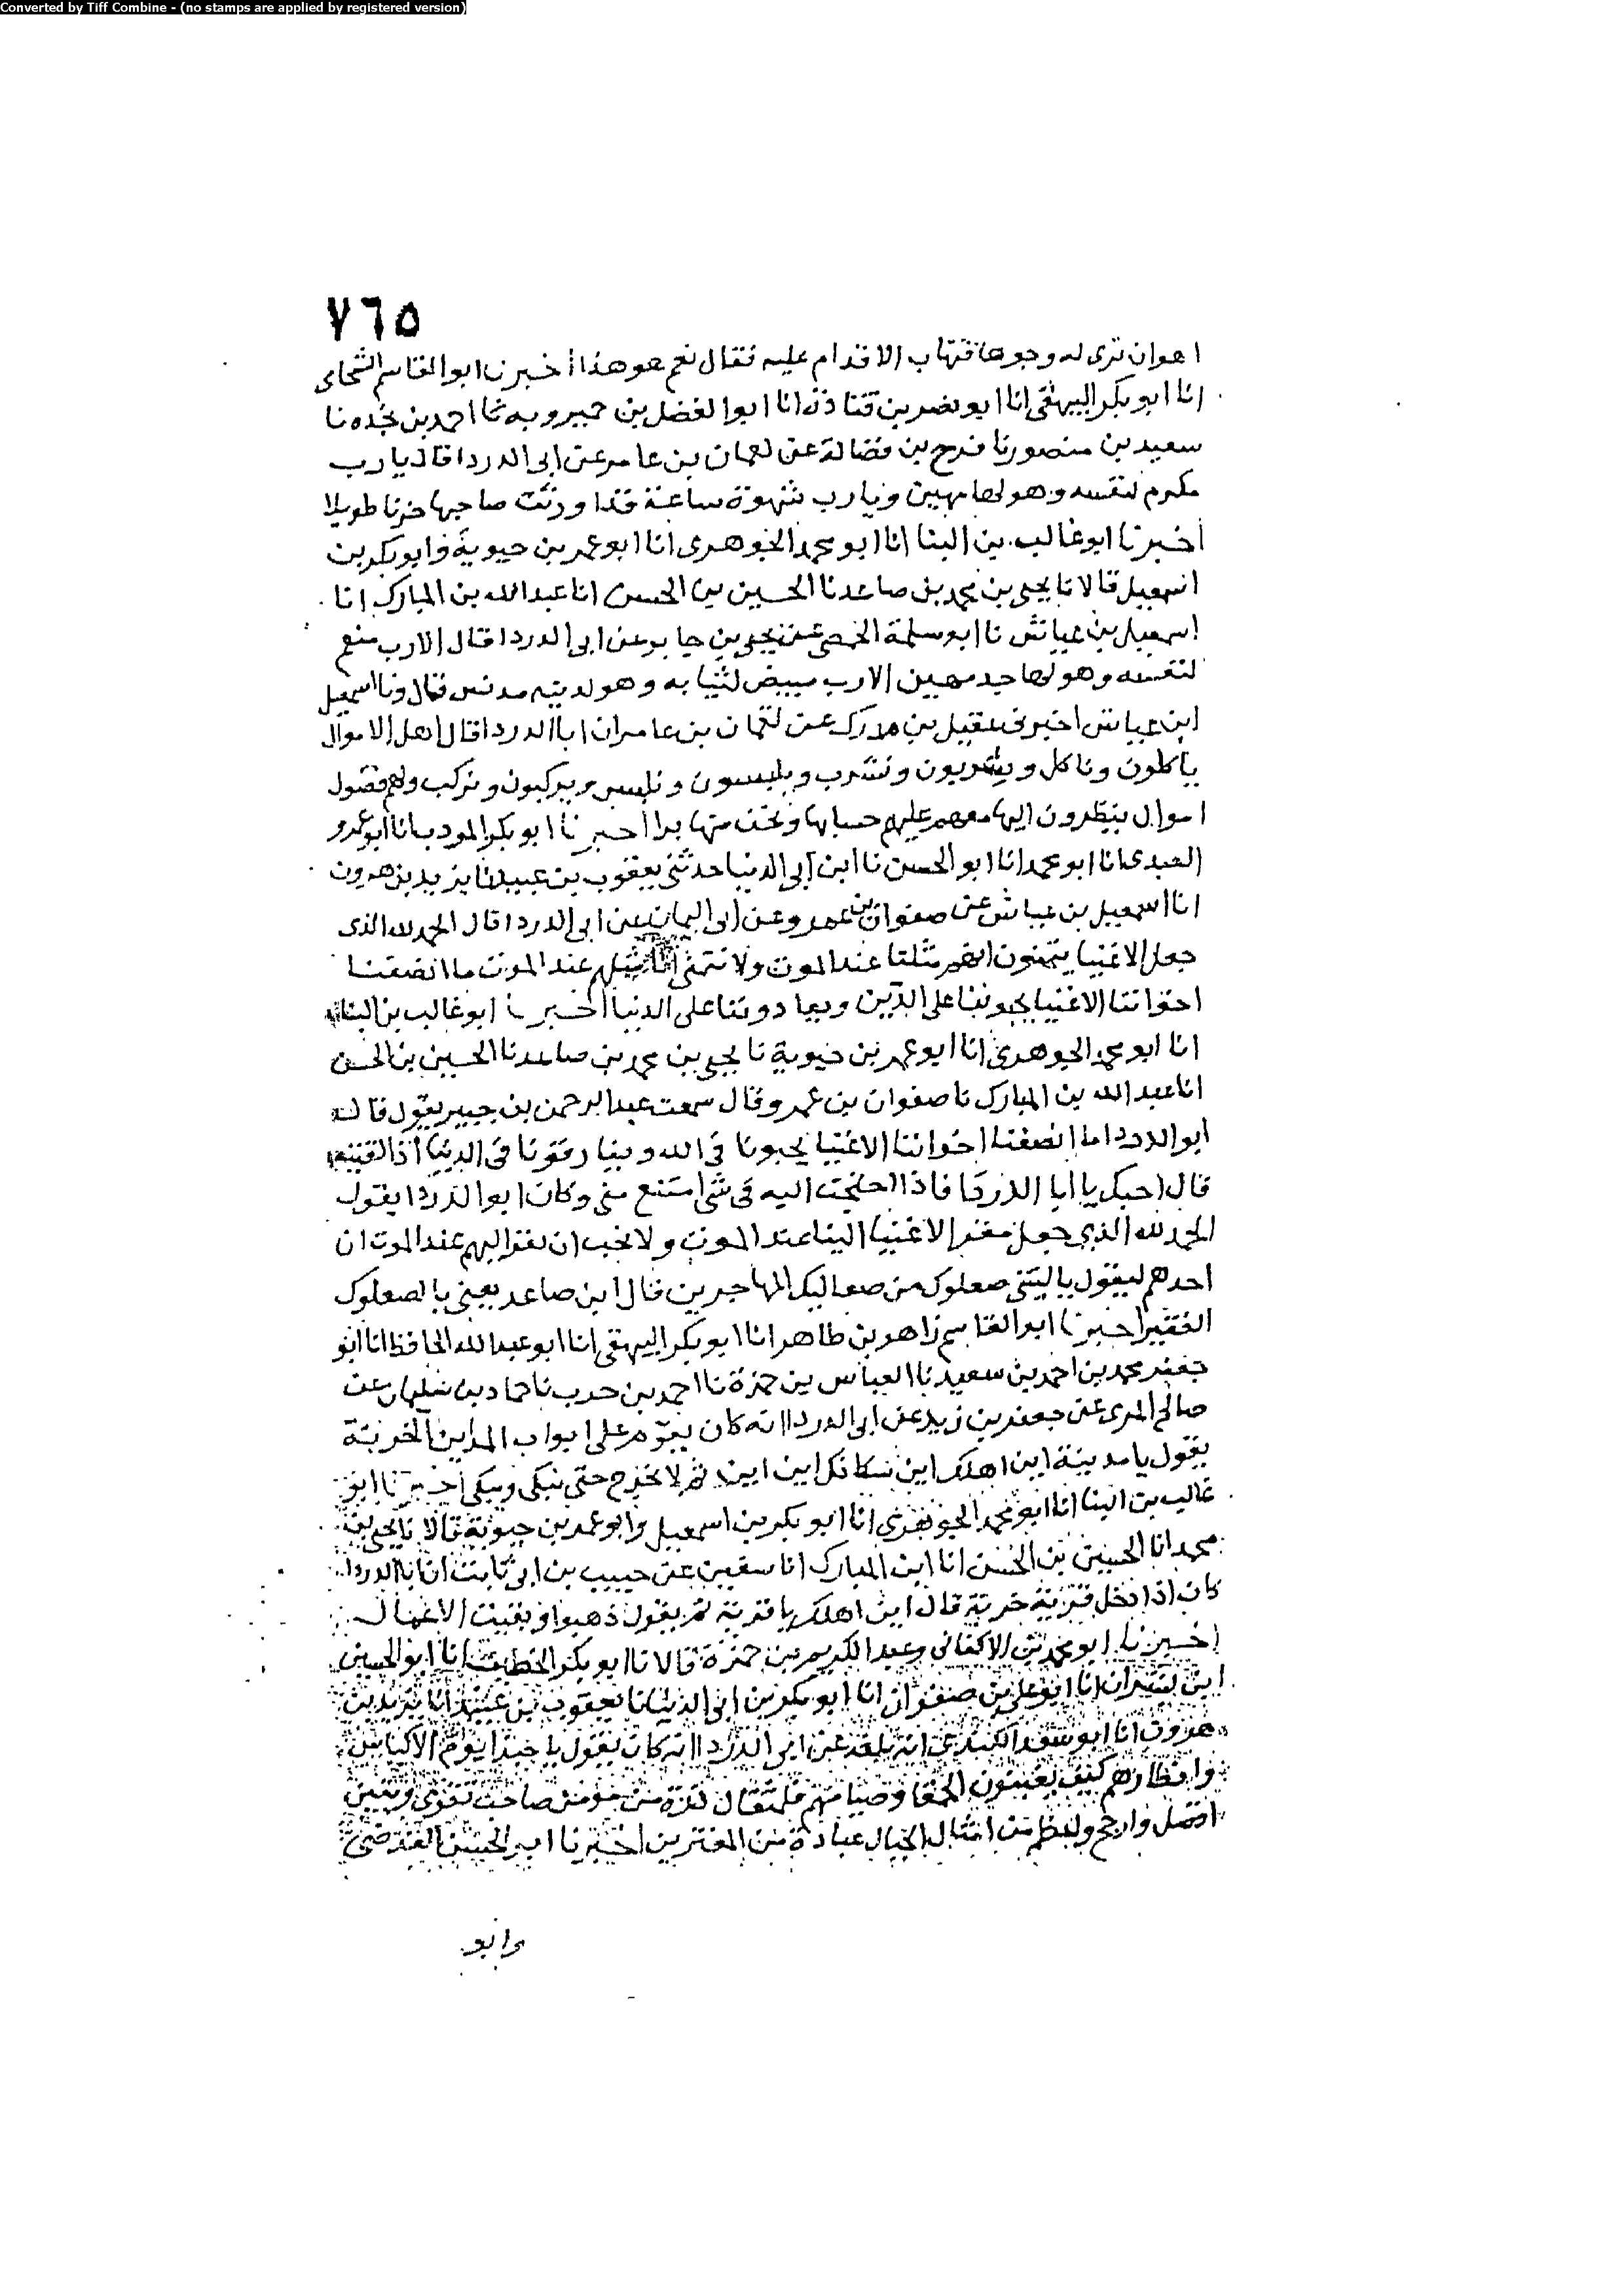 Converted by Tiff Combine - (no stamps are applied by registered version)
٧٦٥
اعوان ترى له وجوها فتهاب الاقدام عليه فقال نعم هو هذا أخبرنا ابو القاسم الشحامى
انا ابو بكر البيهقى انا ابو نصر بن قتادة انا ابو الفضل بن خميرويه نا احمد بن نجده نا
سعيد بن منصور نا فرج بن فضالة عن لقمان بن عامر عن ابى الدردا قال يا رب
مكرم لنفسه وهو لها مهين ويا رب شهوة ساعة قد اورثت صاحبها حزنا طويلا
أخبرنا ابو غالب بن البنا انا ابو محمد الجوهرى انا ابو عمر بن حيوية وابو بكر بن
اسمعيل قالا نا يحيى بن محمد بن صاعد نا الحسين بن الحسن انا عبد الله بن المبارك انا
اسمعيل بن عياش نا ابو سلمة الحمصى عن يحيى بن جابر عن ابى الدردا قال الا رب منعم
لنفسه وهو لها جد مهين الا رب مبيض لثيابه وهو لدينه مدنس قال ونا اسمعيل
ابن عياش اخبرنى عقيل بن مدرك عن لقمان بن عامر ان ابا الدردا قال اهل الاموال
ياكلون وناكل ويشربون ونشرب ويلبسون ونلبس ويركبون ونركب ولهم فضول
اموال ينظرون اليها معهم عليهم حسابها ونحن منها برا أخبرنا ابو بكر المودب انا ابو عمرو
العبدى انا ابو محمد انا ابو الحسن نا ابن ابى الدنيا حدثنى يعقوب بن عبيد نا يزيد بن هرون
انا اسمعيل بن عياش عن صفوان بن عمرو عن ابى اليمان عن ابى الدردا قال الحمد لله الذى
جعل الاغنيا يتمنون انهم مثلنا عند الموت ولا نتمنى انا مثلهم عند الموت ما انصفنا
اخواننا الاغنيا يحبوننا على الدين ويعادوننا على الدنيا أخبرنا ابو غالب بن البنا
انا ابو محمد الجوهرى انا ابو عمر بن حيوية نا يحيى بن محمد بن صاعد نا الحسين بن الحسن
انا عبد الله بن المبارك نا صفوان بن عمرو قال سمعت عبد الرحمن بن جبير يقول قال
ابو الدردا ما انصفنا اخواننا الاغنيا يحبونا فى الله ويفارقونا فى الدنيا اذا لقيته
قال احبك يا ابا الدردا فاذا احتجت اليه فى شى امتنع منى وكان ابو الدردا يقول
الحمد لله الذي جعل مفر الاغنيا الينا عند الموت ولا نحب ان نفر اليهم عند الموت ان
احدهم ليقول يا ليتنى صعلوك من صعاليك المهاجرين قال ابن صاعد يعنى بالصعلوك
الفقير أخبرنا ابو القاسم زاهر بن طاهر انا ابو بكر البيهقى انا ابو عبد الله الحافظ انا ابو
جعفر محمد بن احمد بن سعيد نا العباس بن حمزة نا احمد بن حرب نا حماد بن سليمان عن
صالح المرى عن جعفر بن زيد عن ابى الدردا انه كان يقوم على ابواب المداين الخربة
يقول يا مدينة اين اهلك اين سكانك اين اين ثم لا يخرج حتى يبكى ويبكى أخبرنا ابو
غالب بن البنا انا ابو محمد الجوهرى انا ابو بكر بن اسمعيل وابو عمر بن حيوية قالا نا يحيى بن
محمد انا الحسين بن الحسن انا ابن المبارك انا سفين عن حبيب بن ابى ثابت ان ابا الدردا
كان اذا دخل قرية خربة قال اين اهلك يا قرية ثم يقول ذهبوا وبقيت الاعمال
أخبرنا ابو محمد بن الاكفانى وعبد الكريم بن حمزة قالا نا ابو بكر الخطيب انا ابو الحسين
ابن بشران انا ابو على بن صفوان انا ابو بكر بن ابى الدنيا نا يعقوب بن عبيد انا يزيد بن
هرون انا ابو سعد الكندى انه بلغه عن ابى الدردا انه كان يقول يا حبذا نوم الاكياس
وافطارهم كيف يغبنون الحمقا وصيامهم ولمثقال ذرة من مومن صاحب تقوى ويقين
افضل وارجح واعظم من امثال الجبال عبادة من المغترين أخبرنا ابو الحسن الفرضى
وابو